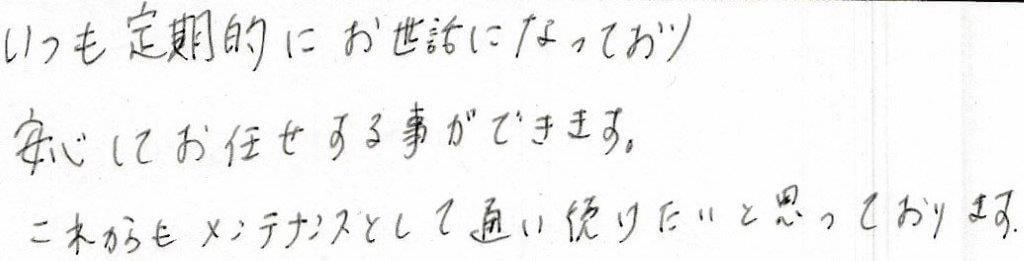 いつも定期的にお世話になっており
安心してお任せする事ができます。
これからもメンテナンスとして通い続けたいと思っております.